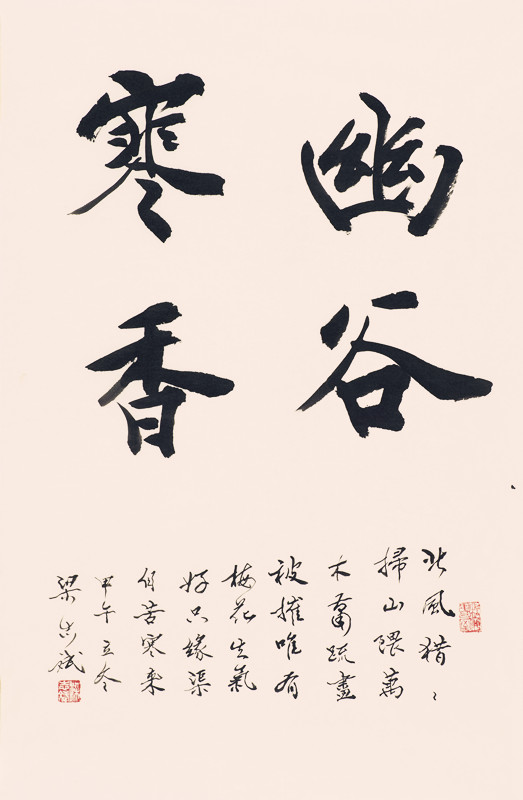 幽谷
寒香
北風猎〻
掃山隈萬
木蕭疏盡
被摧唯有
梅花生氣
好只緣渠
自苦寒来
甲午立冬
梁斌